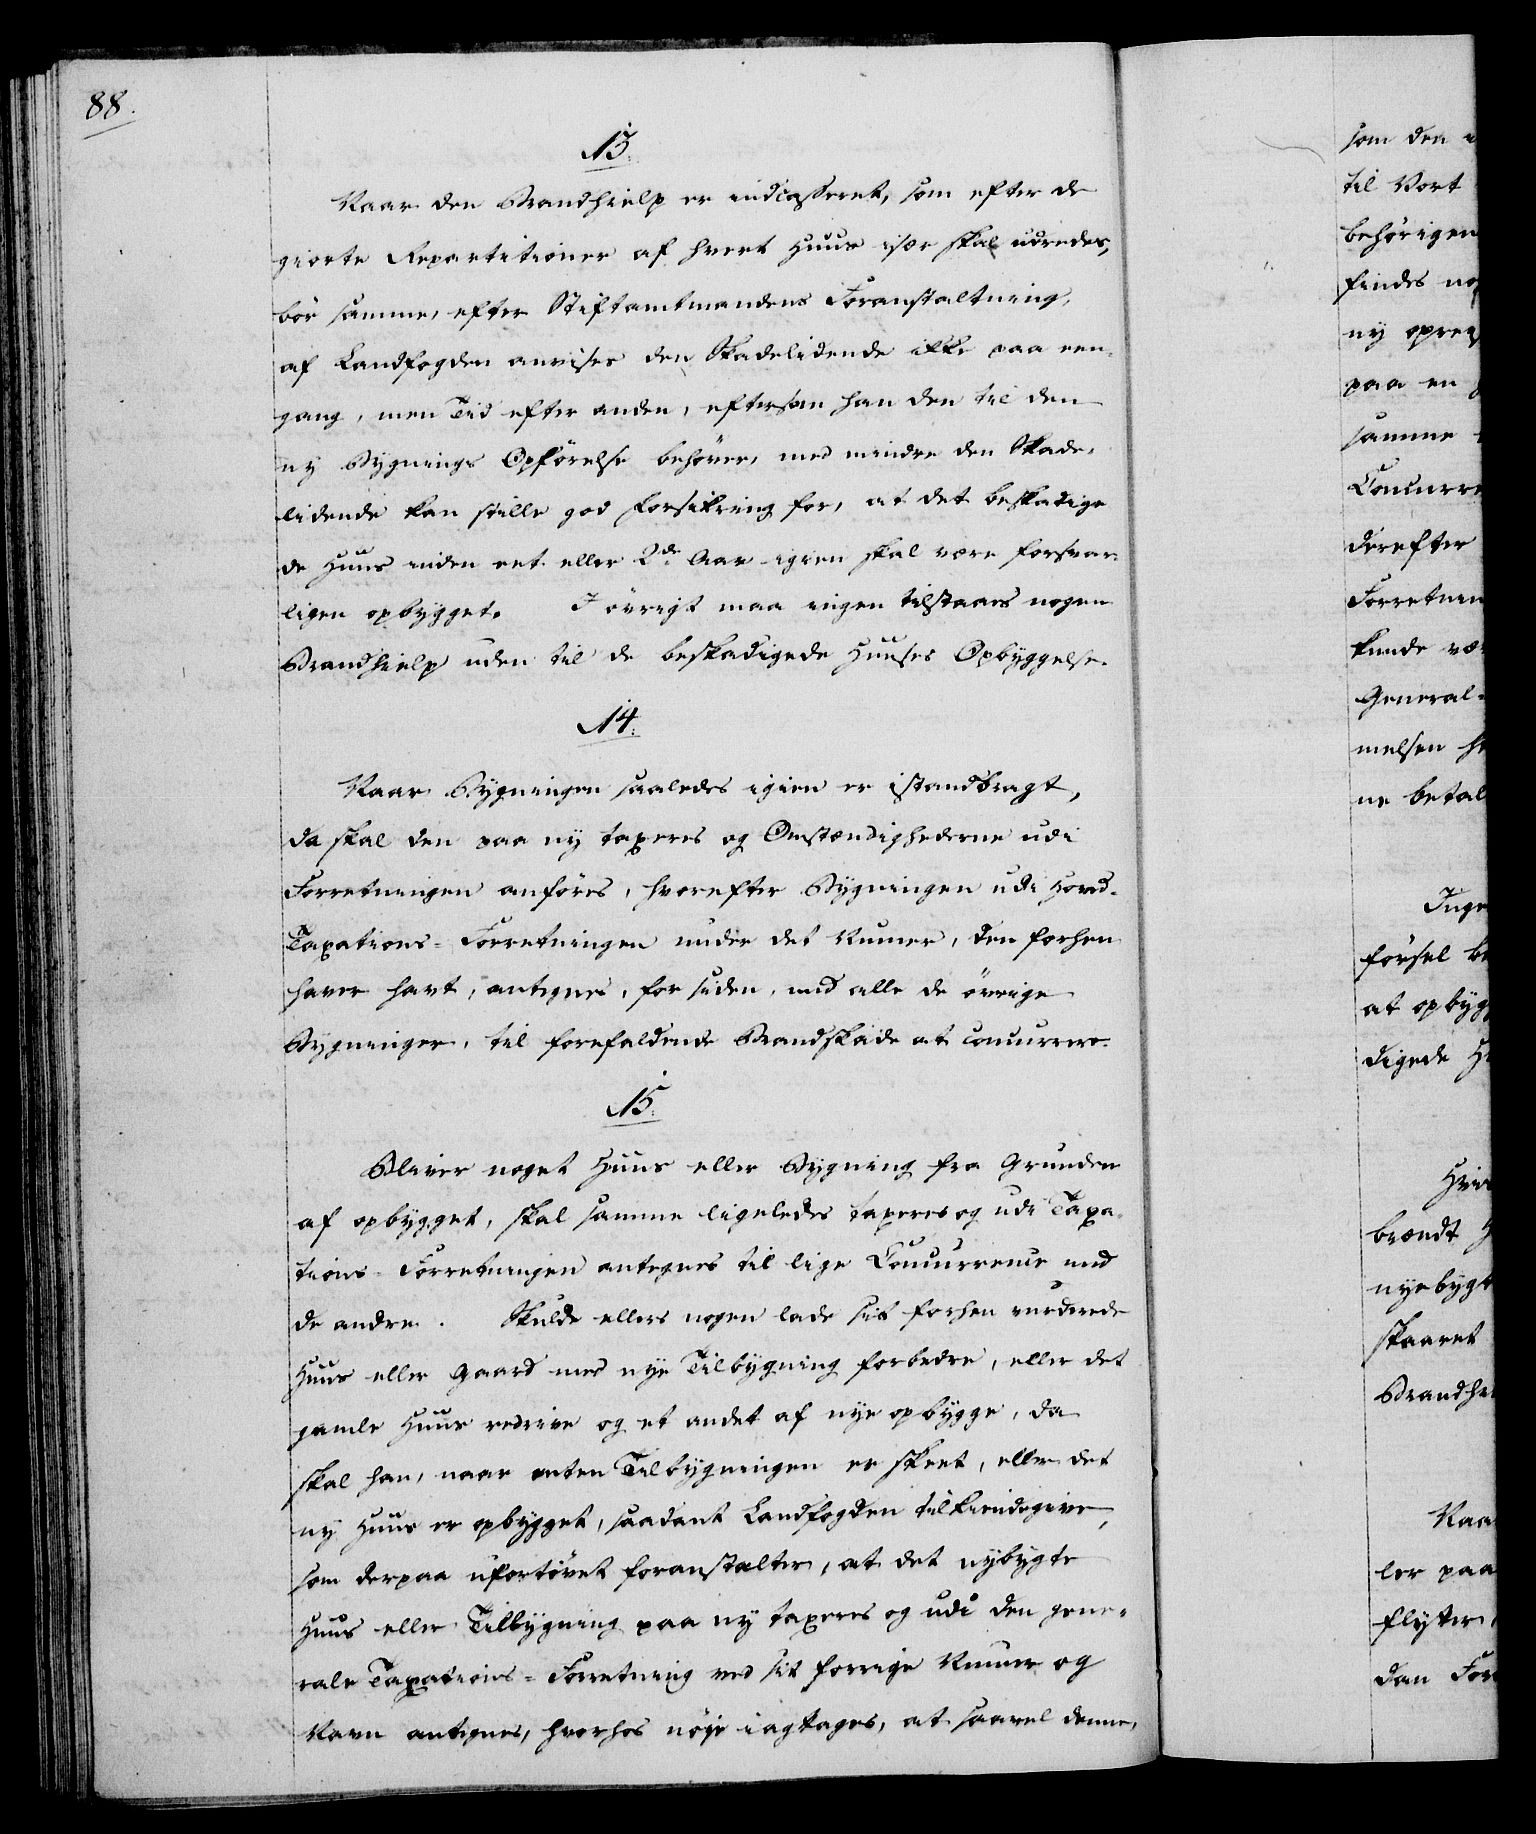 88.
13.
Naar den Brandhielp er indcasseret, som efter de
giorte Repartitioner af hvert Huus især skal udredes,
bör samme, efter Stiftamtmandens Foranstaltning,
af Landfogden anvises den Skadelidende ikke paa een-
gang, men Tid efter anden, eftersom han den til den
ny Bygnings Opförelse behöver, med mindre den Skade-
lidende kan stille god Forsikring for, at det beskadige
de Huus inden eet eller 2de Aar igien skal være forsvar-
ligen opbygget. I övrigt maa ingen tilstaaes nogen
Brandhielp uden til de beskadigede Huuses Opbyggelse.
14.
Naar Bygningen saaledes igien er istandbragt,
da skal den paa ny taxeres og Omstændighederne udi
Forretningen anföres, hvorefter Bygningen udi Hoved-
Taxations-Forretningen under det Numer, den forhen
haver havt, antegnes, for siden, med alle de övrige
Bygninger, til forefaldende Brandskade at concurrere.
15.
Bliver noget Huus eller Bygning fra Grunden
af opbygget, skal samme ligeledes taxeres og udi Taxa-
tions-Forretningen antegnes til lige Concurrence med
de andre. Skulde ellers nogen lade sit forhen vurderede
Huus eller Gaard med nye Tilbygning forbedre, eller det
gamle Huus nedrive og et andet af nye opbygge, da
skal han, naar enten Tilbygningen er skeet, eller det
ny Huus er opbygget, saadant Landfogden tilkiendegive,
som derpaa ufortövet foranstalter, at det nybygte
Huus eller Tilbygning paa ny taxeres og udi den gene-
rale Taxations-Forretning ved sit forrige Numer og
Navn antegnes, hvorhos nöje iagtages, at saavel denne,
som den
til Vort
behörigen
findes
ny
paa en
samme
derefter
kunde
General-
melsen
ne
försel
at
digede
brændt
nyebygt
skaaret
ler paa
flytter
dan